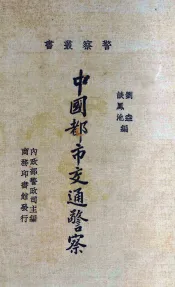 書叢察警
劉壵
談鳳池 編
中國都市交通警察
內政部警政司主編
商務印書館發行